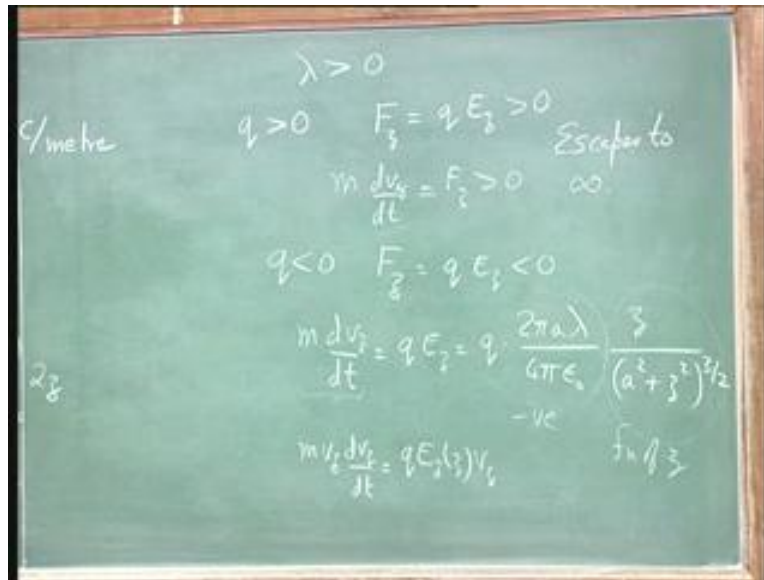 λ > 0
C/metre
q > 0 F_z = q E_z > 0
Escapes to ∞.
m dv_z/dt = F_z > 0
q < 0 F_z = q E_z < 0
m dv_z/dt = q E_z = q · 2πaλ/4πϵ₀ z/(a² + z²)^{3/2}
2z
-ve
fn of z
m v_z dv_z/dt = q E_z(z) v_z